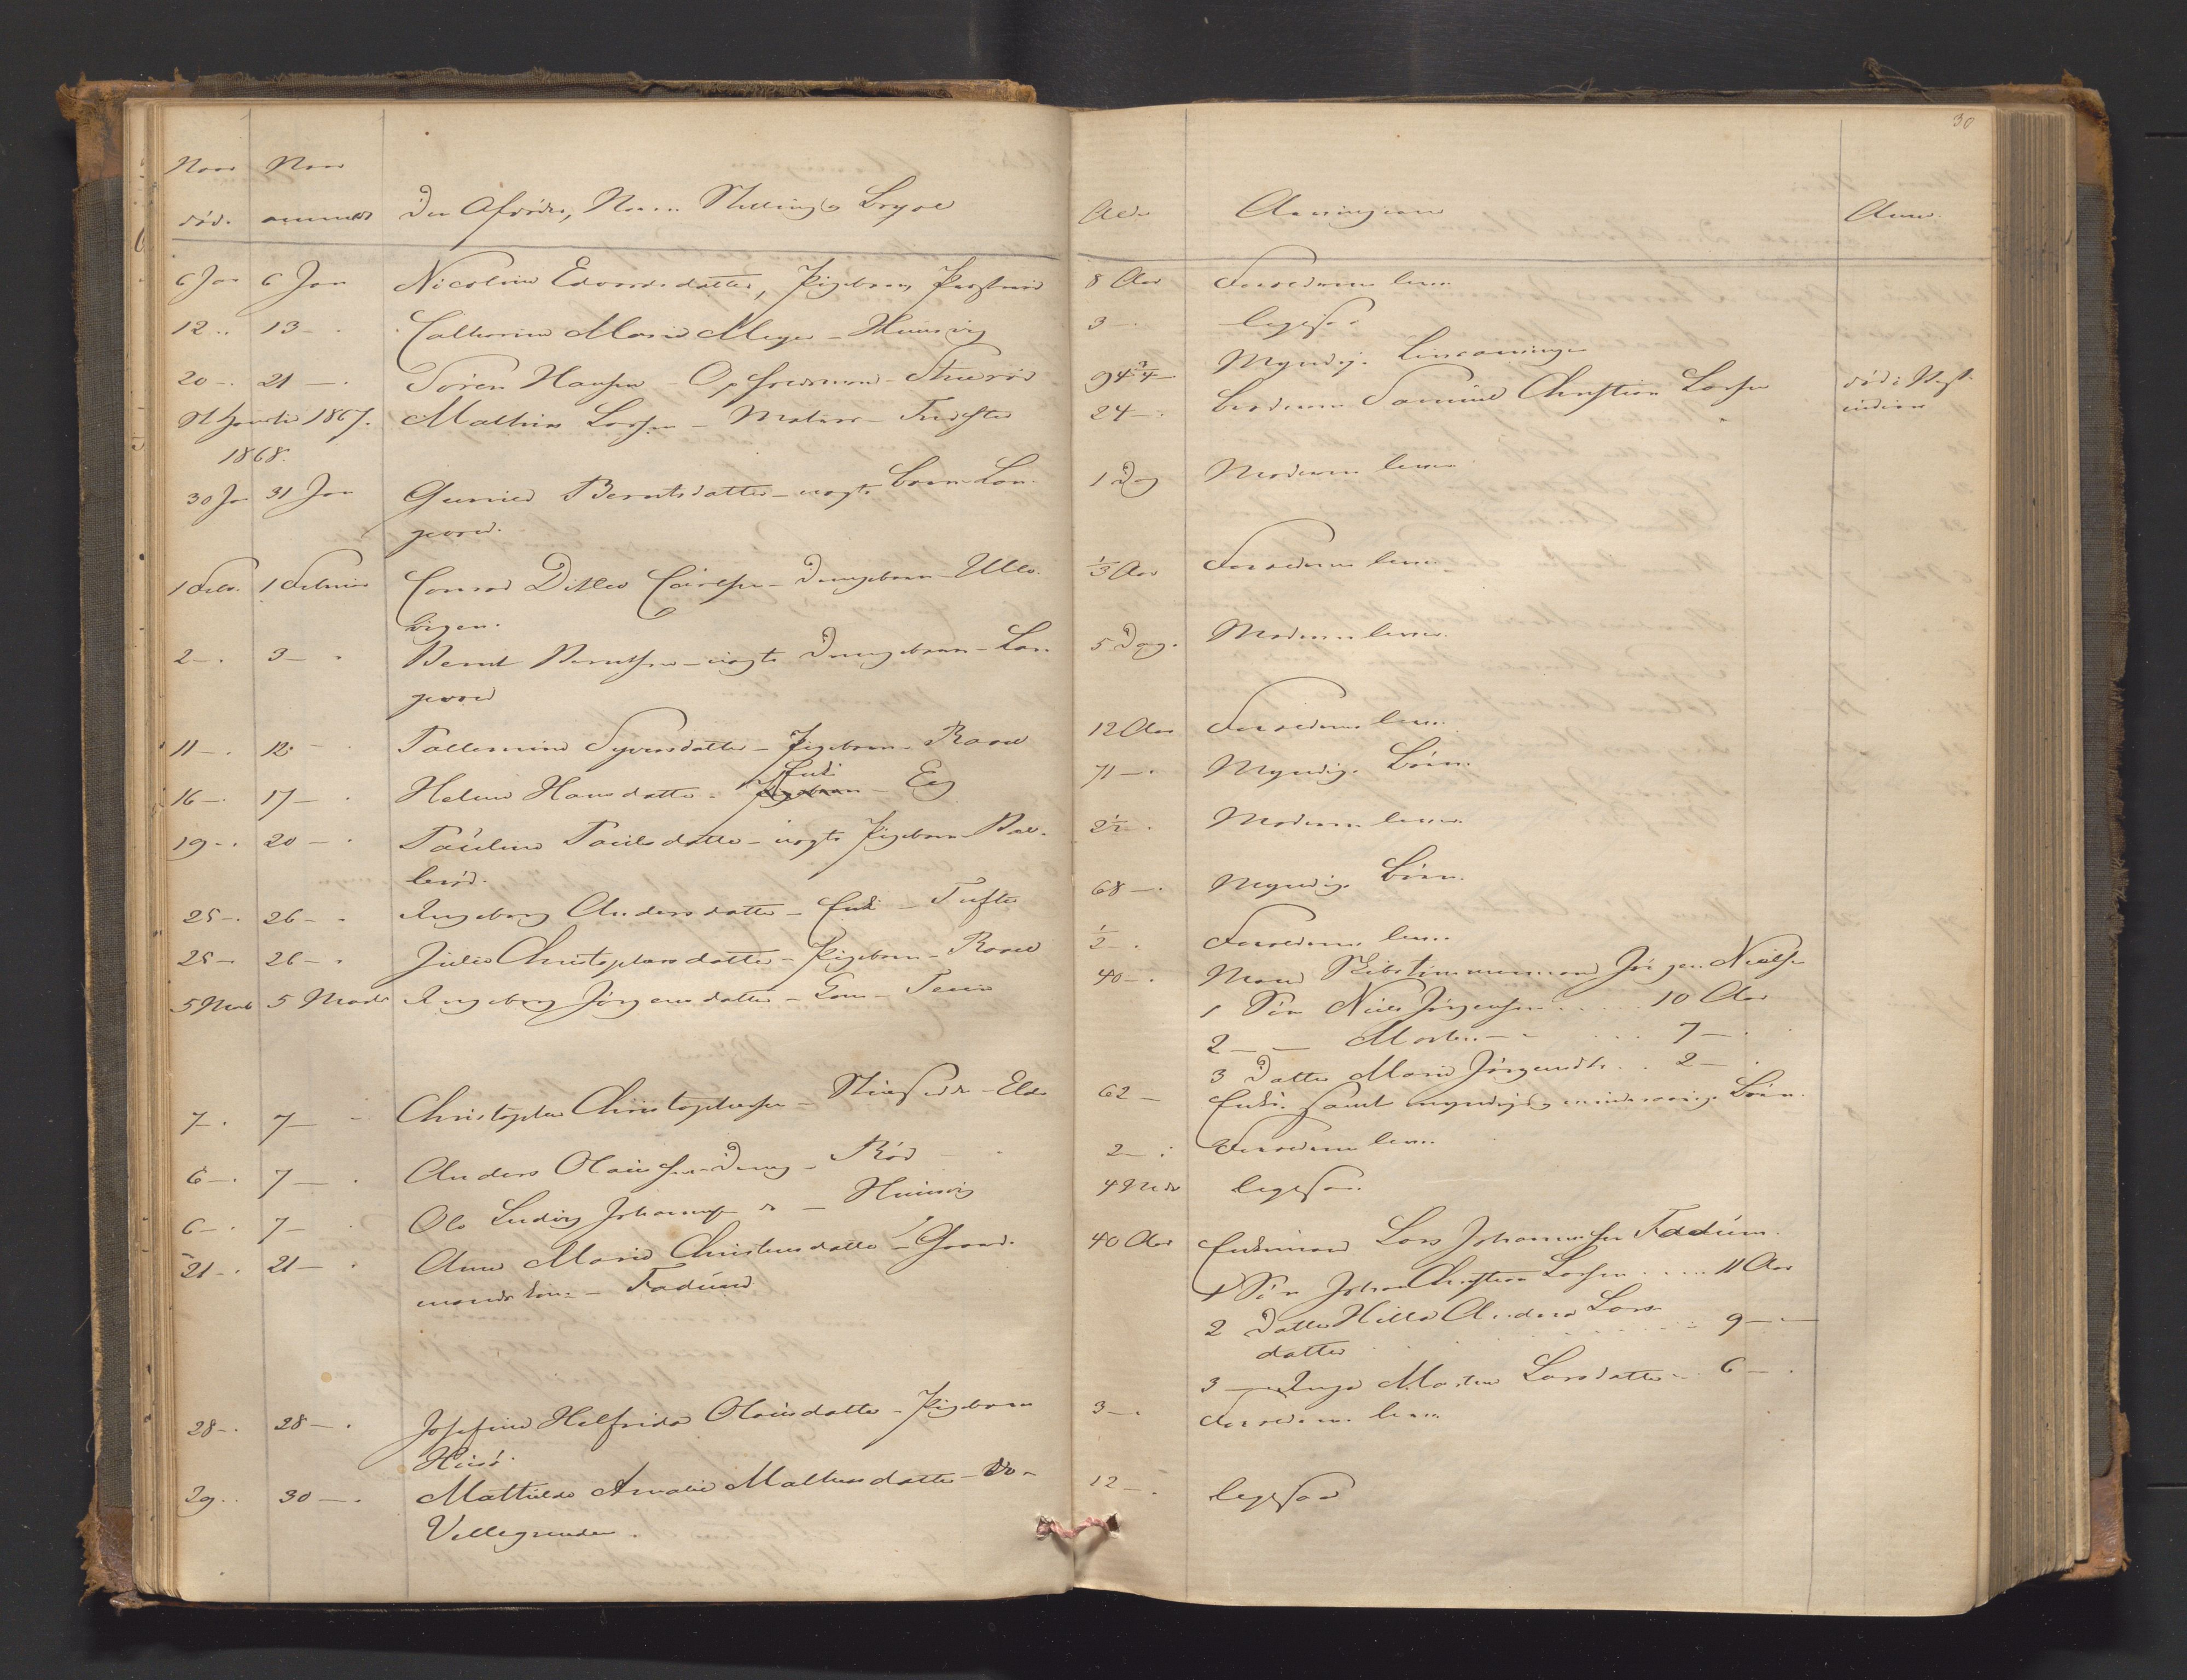 30
Naar Naar
død. anmeldt Den Afdøde, Navn Stilling og Bopæl Alder Arvingerne Anm.
6 Jan 6 Jan Nicoline Edvardsdatter, Pigebarn 8 Aar Forældrene lever
12 - 13 - Cathrine Marie Meyer - Hunsvig 3 - ligesaa
20 - 21 - Søren Hansen - Opsiddermand - 94 3/4 - Myndige Livsarvinger
1867. Mathias Larsen - Matros - 24 - Broderen Samuel Christian Larsen død i Vest-
indien
1868.
30 Jan 31 Jan Gunnild Berntsdatter - uægte Barn - Lan- 1 Dag Moderen lever
gaard.
1 Febr. 1 Februar Conrad Ditlev Carlsen - Drengebarn - Ula- 1/3 Aar Forældrene lever
bugen.
2 - 3 - Bernt Berntsen - uægte Drengebarn - Lan- 5 Dage Moderen lever
gaard
11 - 12 - Tallemine Syversdatter - Pigebarn - 12 Aar Forældrene lever
16 - 17 - Helene Hansdatter - Enke - Eeg 71 - Myndige Børn
19 - 20 - Pauline Paulsdatter - uægte Pigebarn - 2 1/2 - Moderen lever
25 - 26 - Ingeborg Andersdatter - Enke - Tufte 68 - Myndige Børn.
25 - 26 - Julie Christophersdatter - Pigebarn - 1/2 - Forældrene lever
5 Marts 5 Marts Ingeborg Jørgensdatter - Kone - 40 - Mand Skibstømmermand Jørgen Nielsen
1 Søn Niels Jørgensen 10 Aar
2 - - Morten - 7 -
3 Datter Marie Jørgensdtr. 2 -
7 - 7 - Christopher Christophersen - 62 - Enke samt myndige og mindreaarige Børn.
6 - 7 - Anders Olausen - Dreng - Rød 2 - Forældrene lever
6 - 7 - Ole Ludvig Johannesen do - Hunsvig 4 Mdr ligesaa
21 - 21 - Anne Marie Christensdatter - Gaard- 40 Aar Enkemand Lars Johannesen Fadum.
mandskone - Fadum 1 Søn Johan Christian Larsen 11 Aar
2 Datter Hilda Andrea Lars-
datter 9 -
3 - Inga Martine Larsdatter 6 -
28 - 28 - Josefine Helfrida Olausdatter - Pigebarn 3 - Forældrene lever
29 - 30 - Mathilde Amalie Mathiasdatter - do - 12 - ligesaa
Vellegrunden.